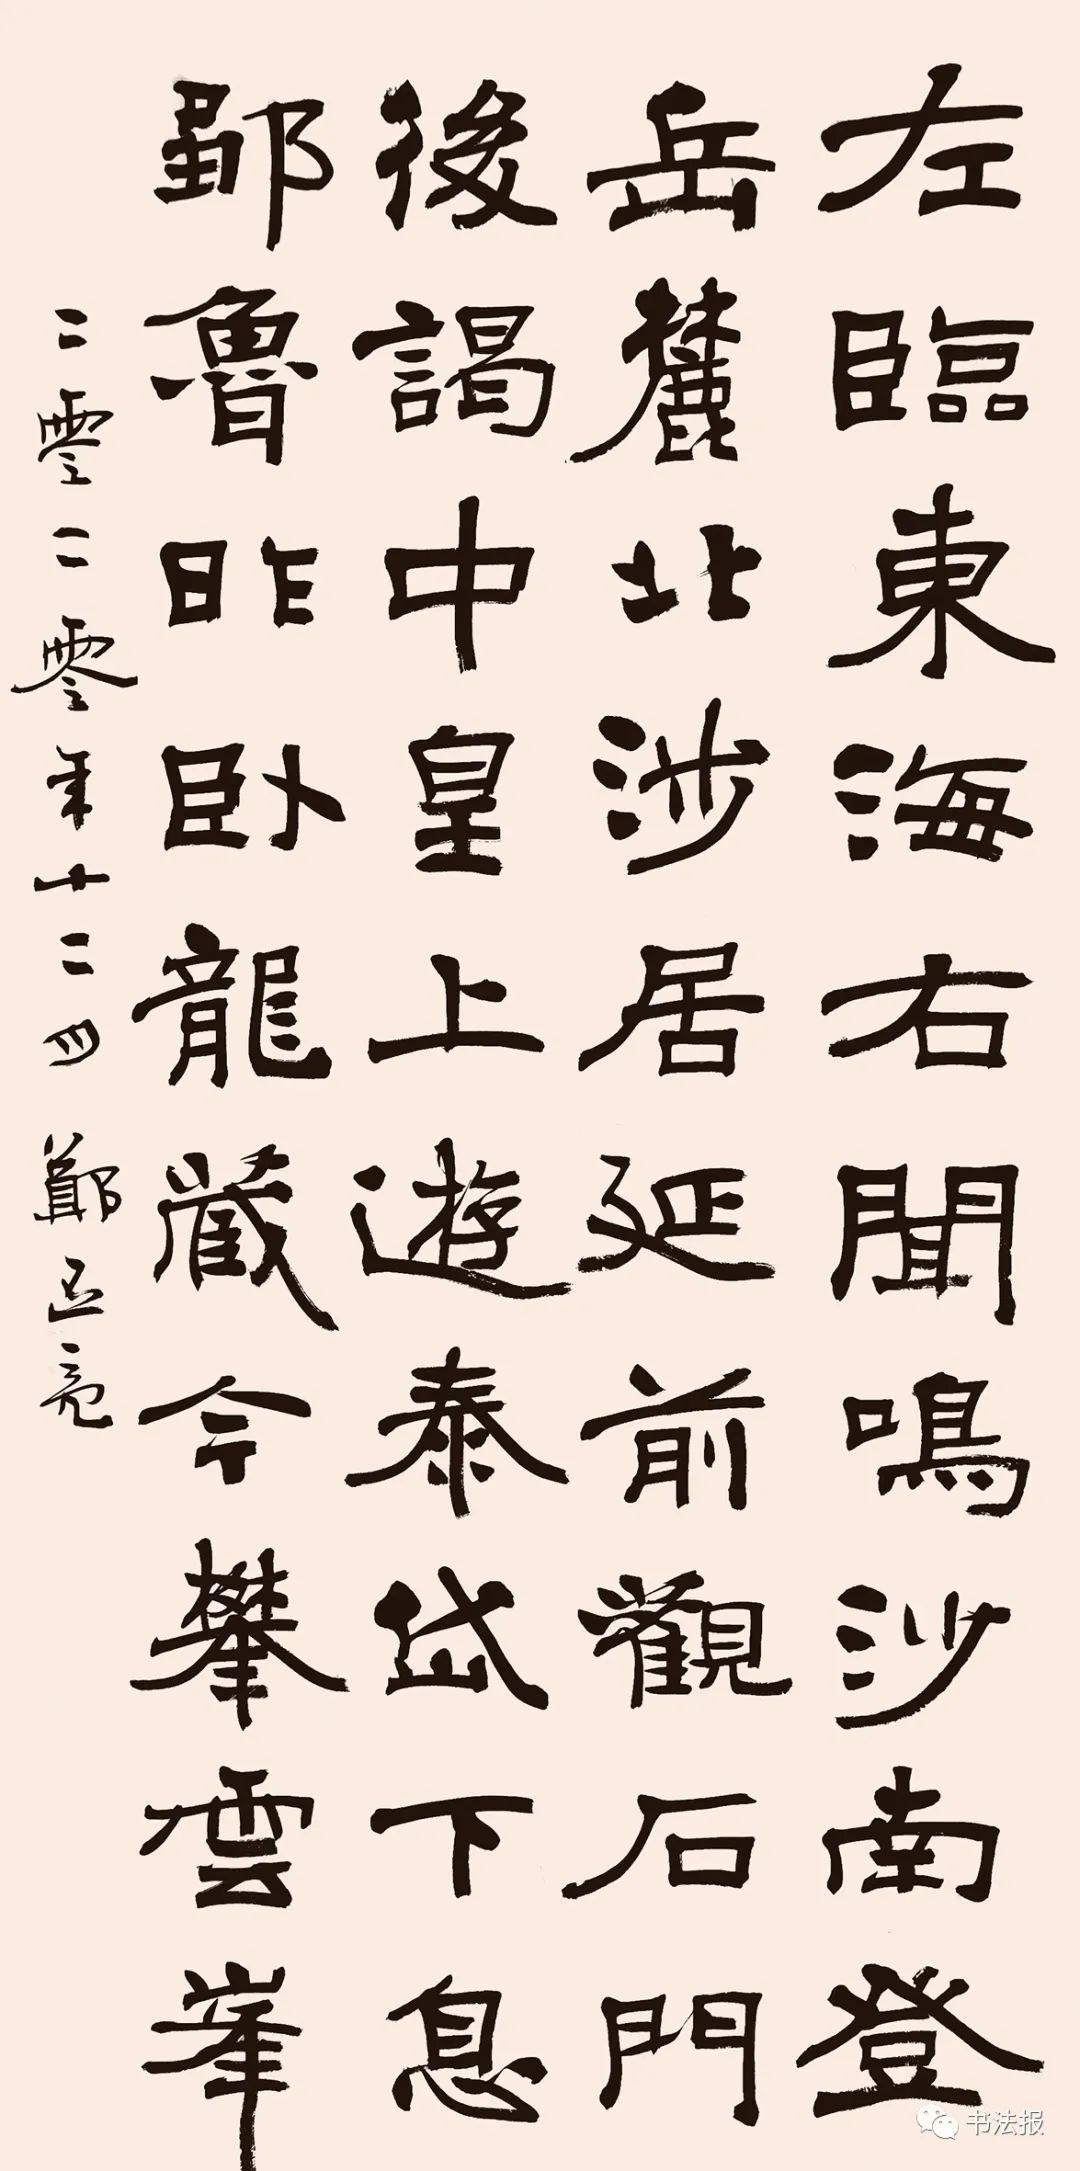 左臨東海右聞鳴沙南登
岳麓北涉居延前觀石門
後謁中皇上遊泰岱下息
鄒魯昨卧龍藏今攀雲峯
二零二零年十二四 鄭亞亮
书法报